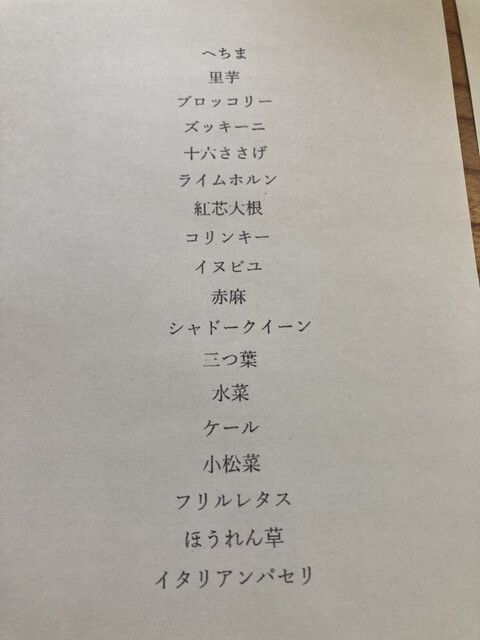 へちま
里芋
ブロッコリー
ズッキーニ
十六ささげ
ライムホルン
紅芯大根
コリンキー
イヌビユ
赤麻
シャドークイーン
三つ葉
水菜
ケール
小松菜
フリルレタス
ほうれん草
イタリアンパセリ